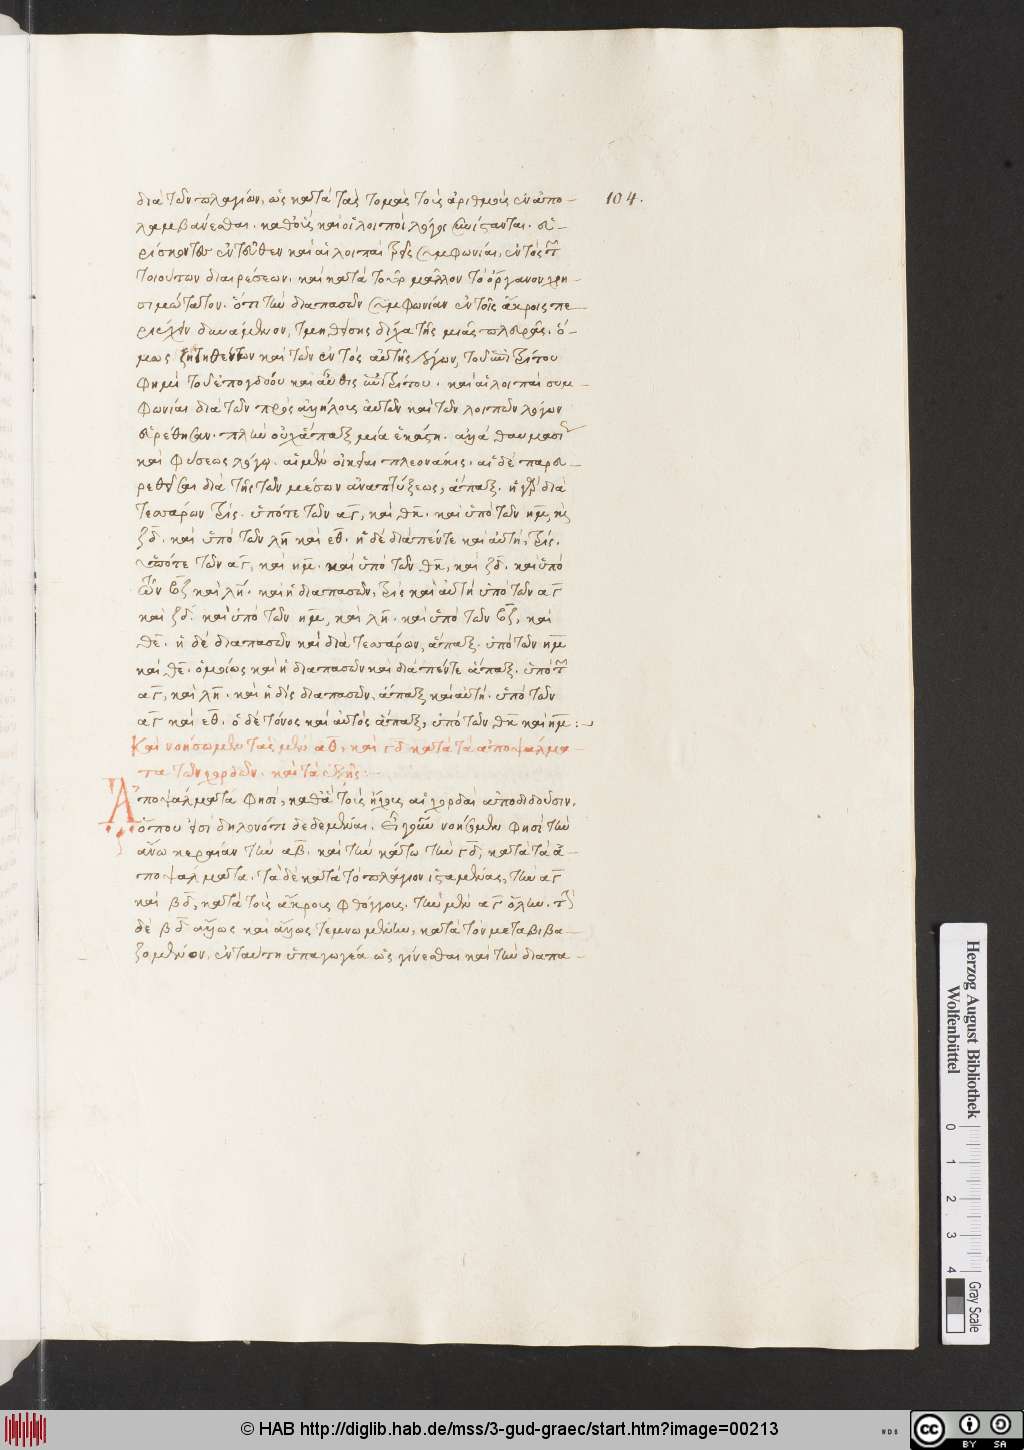 διὰ τῶν πλαγίων, ὡς κατὰ τὰς τομὰς τοῖς ἀριθμοῖς ἐναπο-
λαμβάνεσθαι. καθ οἷς καὶ οἱ λοιποὶ λόγοι συνίστανται. εὑ-
ρίσκονται ἐντεῦθεν καὶ αἱ λοιπαὶ συμφωνίαι, ἐντὸς τῶν
τοιούτων διαιρέσεων. καὶ κατὰ τοῦτο μᾶλλον τὸ ὄργανον χρη-
σιμώτατον. ὅτι τὴν διαπασῶν συμφωνίαν ἐν τοῖς ἄκροις πε
ριέχειν δυναμένου, τμηθείσης δίχα τῆς μιᾶς πλευρᾶς. ὅ-
μως ζητηθέντων καὶ τῶν ἐντὸς αὐτῆς λόγων, τοῦ ἐπιτρίτου
φημὶ τοῦ ἐπογδόου καὶ αὖθις ἐπιτρίτου. καὶ αἱ λοιπαὶ συμ-
φωνίαι διὰ τῶν πρὸς ἀλλήλους αὐτῶν καὶ τῶν λοιπῶν λόγων
εὑρέθησαν. πλὴν οὐχ ἅπαξ μία ἑκάστη. ἀλλὰ θαυμασίῳ
καὶ φύσεως λόγῳ. αἱ μὲν οἰκεῖαι πλεονάκις. αἱ δὲ παρευ-
ρεθεῖσαι διὰ τῆς τῶν μέσων ἀναπτύξεως, ἅπαξ. ἡ γὰρ διὰ
τεσσάρων τρὶς. ὑπό τε τῶν αγ, καὶ θκ. καὶ ὑπὸ τῶν ημ, κ
ζδ. καὶ ὑπὸ τῶν λη καὶ εθ. ἡ δὲ διὰ πέντε καὶ αὐτὴ, τρίς.
ὑπό τε τῶν αγ, καὶ ημ. καὶ ὑπὸ τῶν θκ, καὶ ζδ. καὶ ὑπὸ
τῶν καὶ λη. καὶ ἡ διαπασῶν, τρὶς καὶ αὐτὴ ὑπὸ τῶν αγ
καὶ ζδ. καὶ ὑπὸ τῶν ημ, καὶ λη. καὶ ὑπὸ τῶν καὶ
θε. ἡ δὲ διαπασῶν καὶ διὰ τεσσάρων, ἅπαξ. ὑπὸ τῶν ημ
καὶ θε. ὁμοίως καὶ ἡ διαπασῶν καὶ διὰ πέντε ἅπαξ. ὑπὸ τῶν
αγ, καὶ λη. καὶ ἡ δὶς διαπασῶν, ἅπαξ καὶ αὐτή. ὑπὸ τῶν
αγ καὶ εθ. ὁ δὲ τόνος καὶ αὐτὸς ἅπαξ, ὑπὸ τῶν θκ καὶ ημ :
Καὶ νοήσωμεν τὰς μὲν αβ, καὶ γδ κατὰ τὰ ἀποψάλμα-
τα τῶν χορδῶν. καὶ τὰ ἑξῆς :
Ἀποψάλματα φησὶ, καθ ἃ τοῖς ἤχοις αἱ χορδαὶ ἀποδιδοῦσιν.
ὅπου εἰσὶ δηλονότι δεδεμέναι. Εἰ γοῦν νοήσομεν φησὶ τὴν
ἄνω κεραίαν τὴν αβ. καὶ τὴν κάτω τὴν γδ, κατὰ τὰ ἀ-
ποψάλματα. τὰ δὲ κατὰ τὸ πλάγιον ἱσταμένας, τὴν αγ
καὶ βδ, κατὰ τοῖς ἄκροις φθόγγοις. τὴν μὲν αγ ὅλην. τὴν
δὲ βδ ἄλλως καὶ ἄλλως τεμνομένην, κατὰ τὸν μεταβιβα-
ζομενον, ἐνταύτη ὑπαγωγέα ὡς γίνεσθαι καὶ τὴν διαπα-
104.
Herzog August Bibliothek
Wolfenbüttel
0 1 2 3 4
Gray Scale
© HAB http://diglib.hab.de/mss/3-gud-graec/start.htm?image=00213
cc BY SA